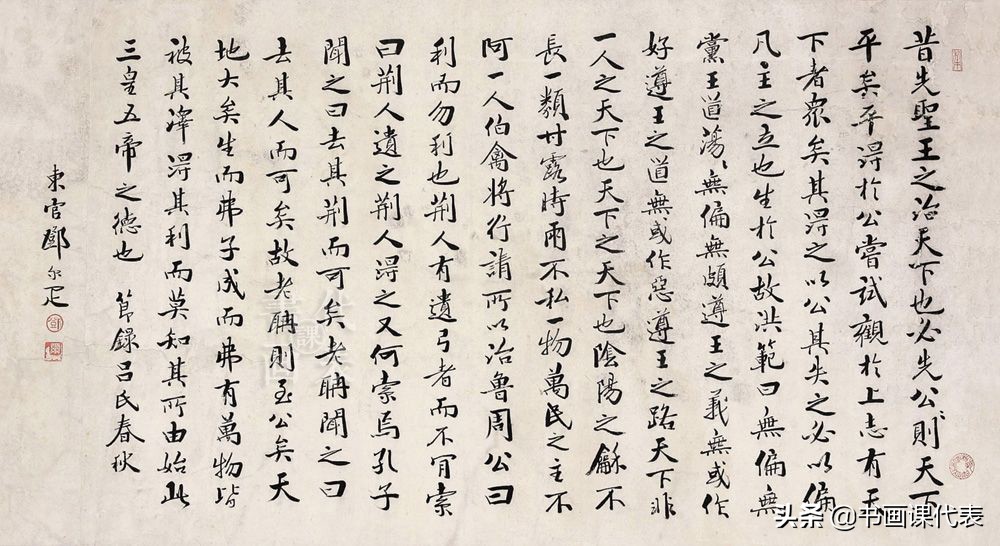 昔先聖王之治天下也必先公則天下
平矣平得於公嘗試觀於上志有天
下者眾矣其得之以公其失之必以偏
凡主之立也生於公故洪範曰無偏無
黨王道蕩〻無偏無頗遵王之義無或作
好遵王之道無或作惡遵王之路天下非
一人之天下也天下之天下也陰陽之龢不
長一類甘露時雨不私一物萬民之主不
阿一人伯禽將行請所以治魯周公曰
利而勿利也荊人有遺弓者而不肯索
曰荊人遺之荊人得之又何索焉孔子
聞之曰去其荊而可矣老聃聞之曰
去其人而可矣故老聃則至公矣天
地大矣生而弗子成而弗有萬物皆
被其澤得其利而莫知其所由始此
三皇五帝之德也 節錄呂氏春秋
東官鄧尔疋
头条 @书画课代表